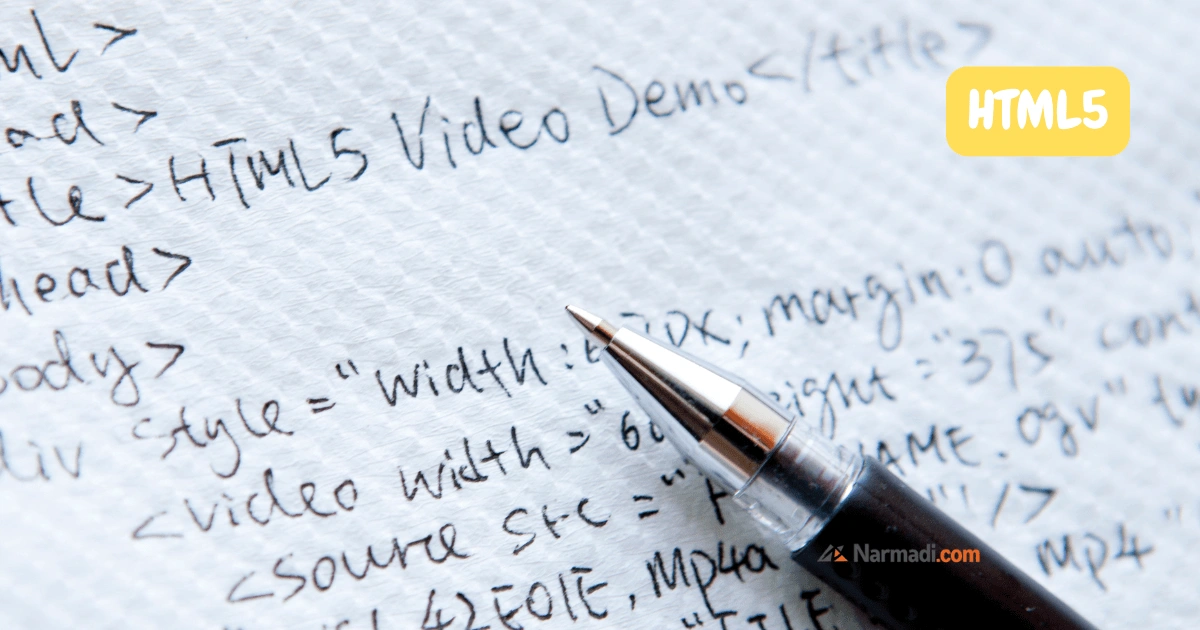 ml>
ead>
tle>HTML5 Video Demo</title>
HTML5
head>
body>
div style="width: px; margin:0 auto;
<video width="60 eight="375" cont
<source src="F NAME.ogv" ty
"/>
42E01E, Mp4a Mp4"
"FILE
Narmadi.com